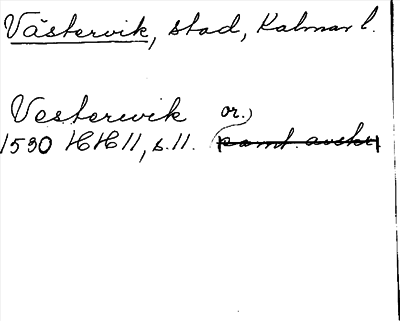 Västervik, stad, Kalmar l.
Vesterwik or.)
1530 HH 11, s. 11. samt. avskr